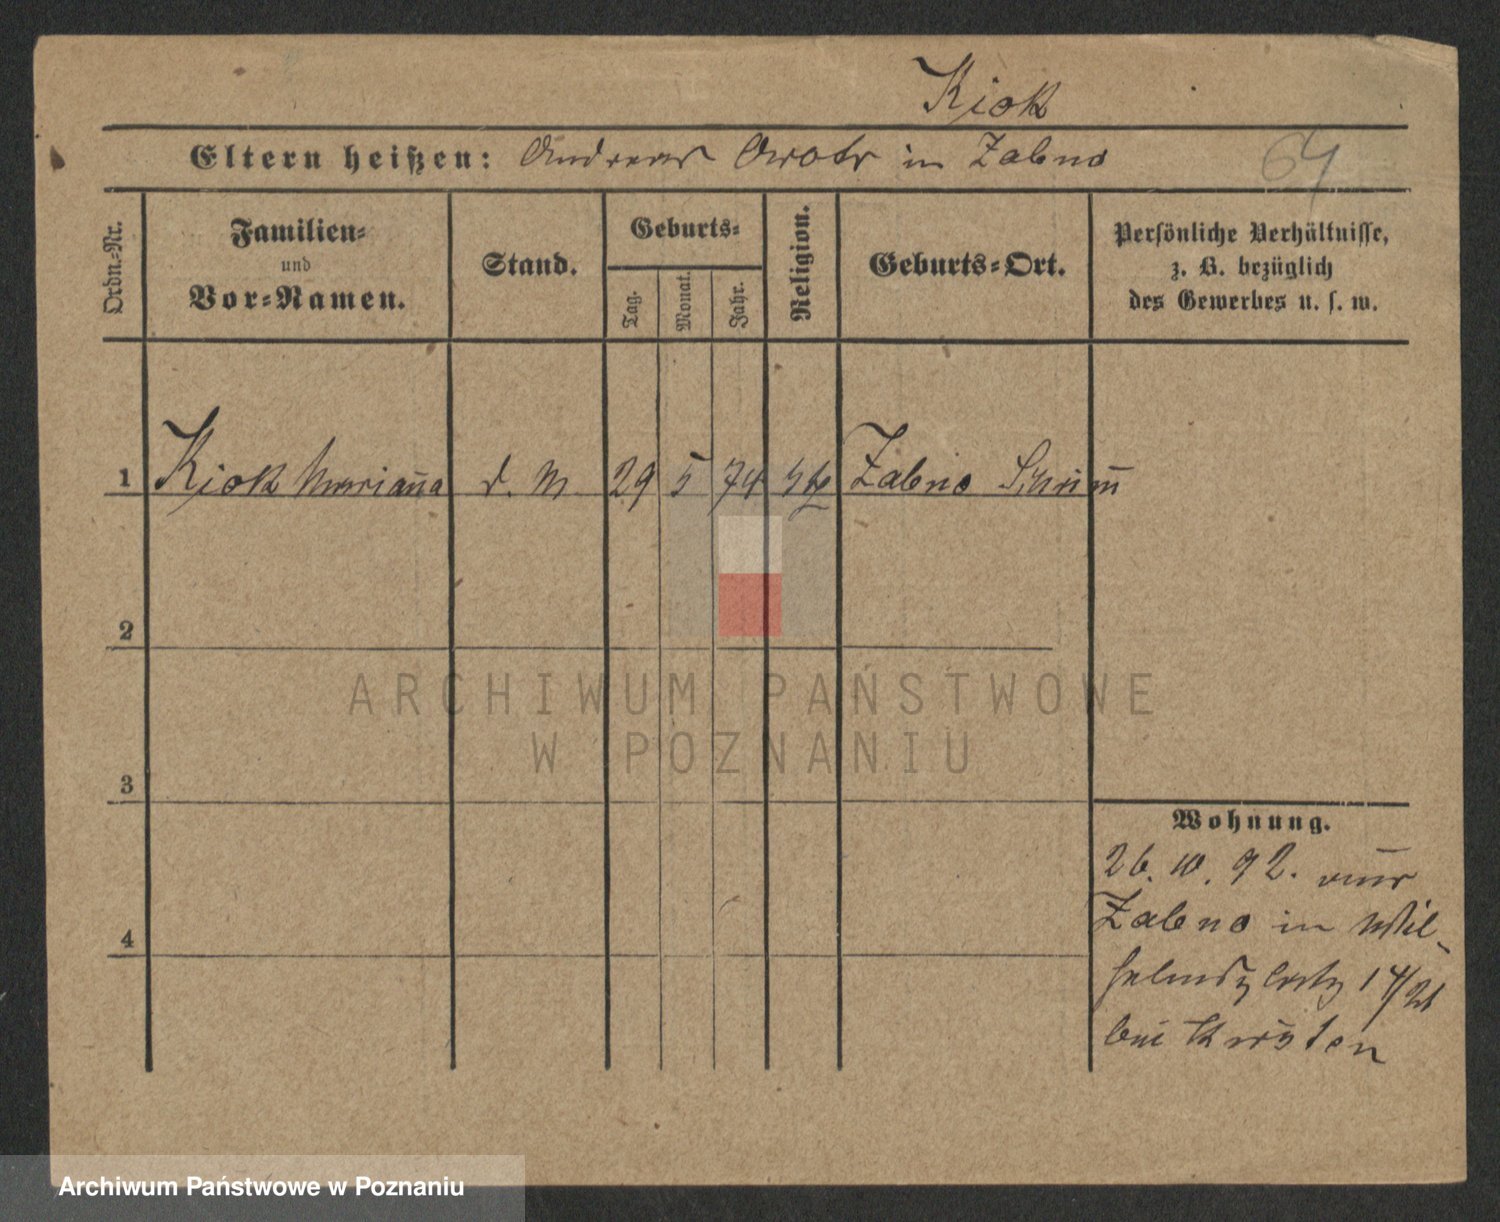 Kiok
Eltern heißen: Andreas in Zabno
64
Ordn.-Nr.
Familien-
und
Vor-Namen.
Stand.
Geburts-
Tag.
Monat.
Jahr.
Religion.
Geburts-Ort.
Persönliche Verhältnisse,
z. B. bezüglich
des Gewerbes u. s. w.
1 Kiok Marianna d. M 29 5 74 kth Zabno Schrim̅
2
3
4
Wohnung.
26. 10. 92. aus
Zabno in Wil-
helmsplatz 14/21
bei Kristen
ARCHIWUM PAŃSTWOWE
W POZNANIU
Archiwum Państwowe w Poznaniu